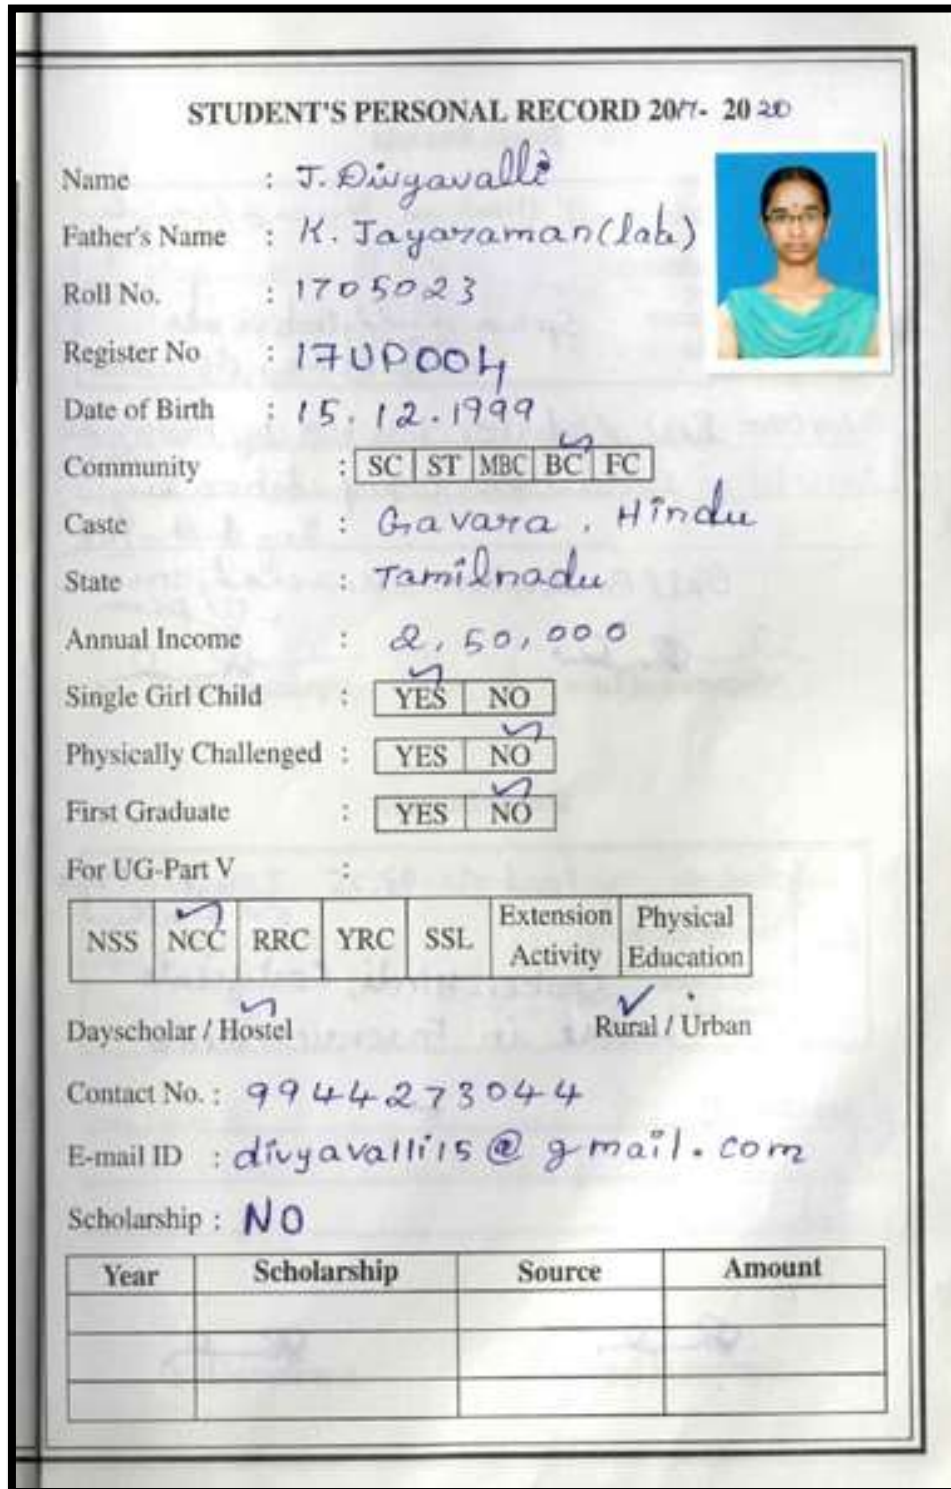 STUDENT'S PERSONAL RECORD 2017- 2020
Name : J. Divyavalli
Father's Name : K. Jayaraman (late)
Roll No. : 1705023
Register No : 17UP004
Date of Birth : 15.12.1999
Community : SC ST MBC BC FC
Caste : Gavara, Hindu
State : Tamilnadu
Annual Income : 2,50,000
Single Girl Child : YES NO
Physically Challenged : YES NO
First Graduate : YES NO
For UG-Part V :
NSS NCC RRC YRC SSL Extension Activity Physical Education
Dayscholar / Hostel Rural / Urban
Contact No. : 9944273044
E-mail ID : divyavalli15@gmail.com
Scholarship : NO
Year Scholarship Source Amount